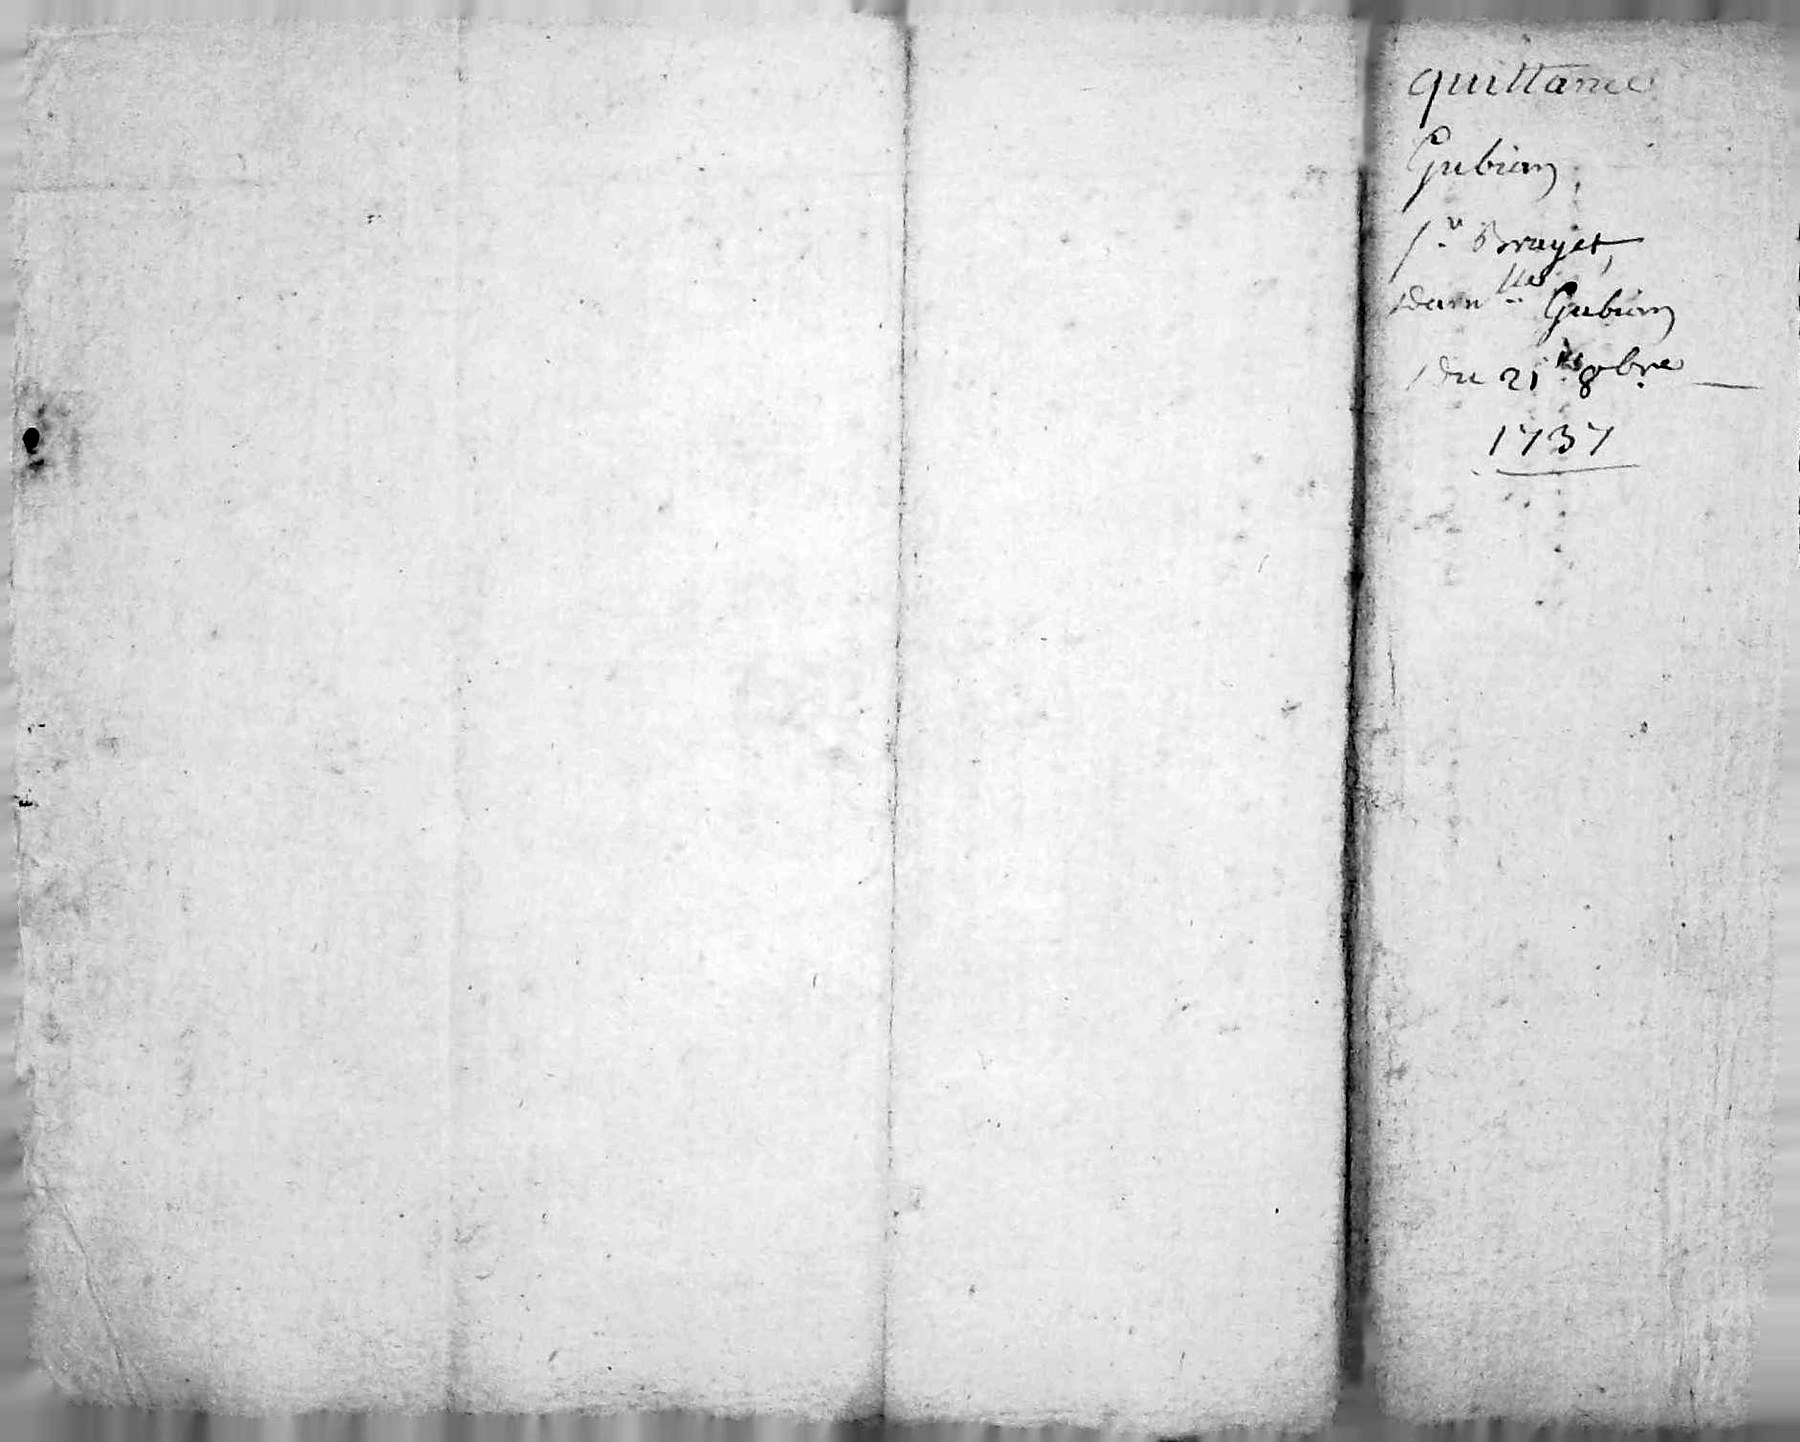 quittance
Gubian,
Sr Brayet,
dam lles Gubian
du 21 8bre
1737